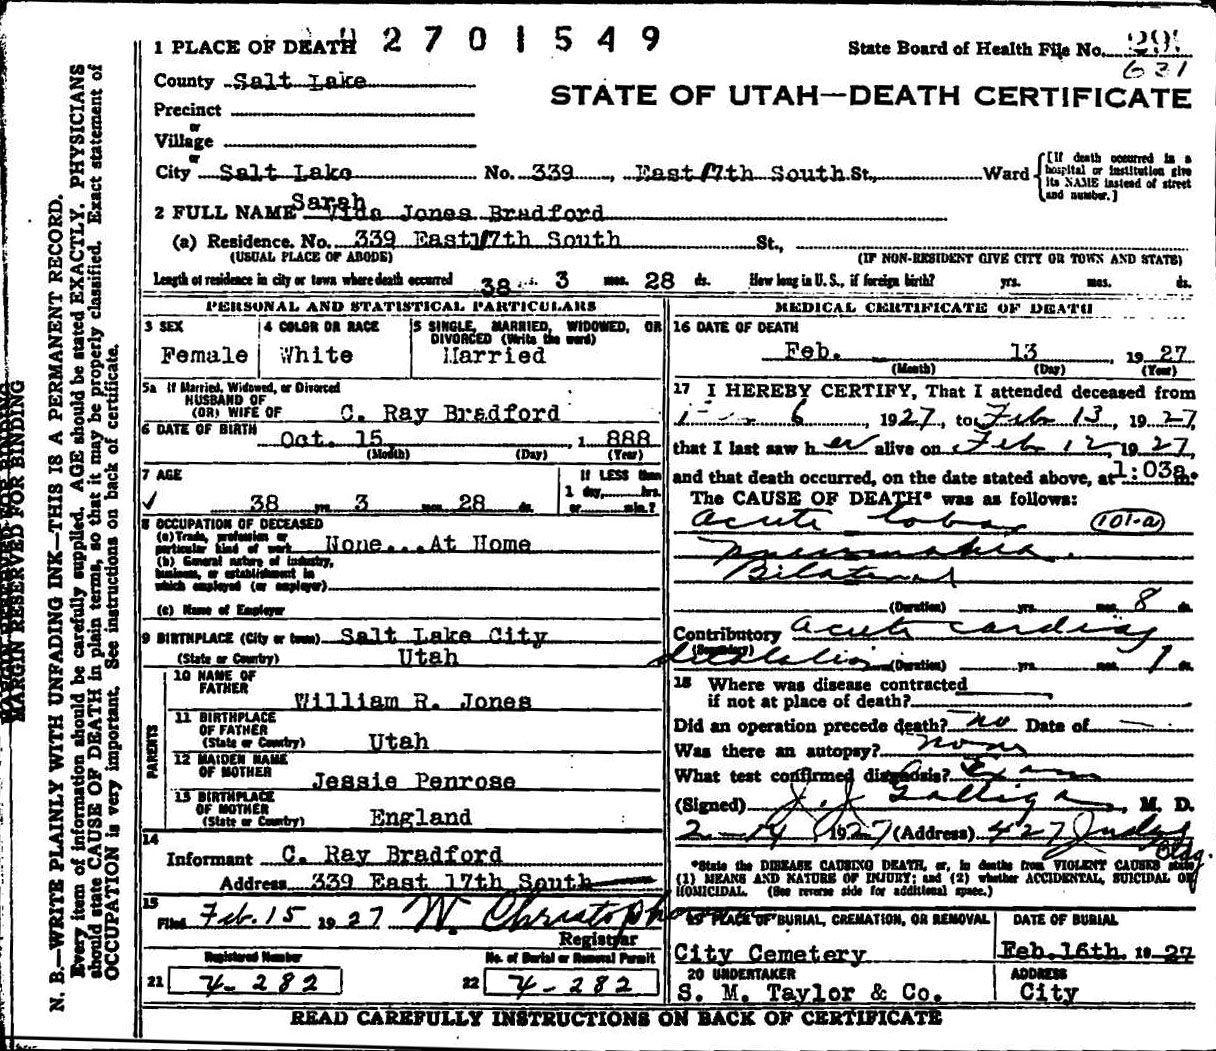 1 PLACE OF DEATH 2 7 0 1 5 4 9
State Board of Health File No.
631
County Salt Lake
STATE OF UTAH—DEATH CERTIFICATE
Precinct
or
Village
or
City Salt Lake No. 339, East 17th South St., Ward [If death occurred in a hospital or institution give its NAME instead of street and number.]
Sarah
2 FULL NAME Vida Jones Bradford
(a) Residence. No. 339 East 17th South St.,
(USUAL PLACE OF ABODE) (IF NON-RESIDENT GIVE CITY OR TOWN AND STATE)
Length of residence in city or town where death occurred 38 yrs. 3 mos. 28 ds. How long in U. S., if foreign birth? yrs. mos. ds.
PERSONAL AND STATISTICAL PARTICULARS
3 SEX
Female
4 COLOR OR RACE
White
5 SINGLE, MARRIED, WIDOWED, OR
DIVORCED (Write the word)
Married
5a If Married, Widowed, or Divorced
HUSBAND OF
(OR) WIFE OF C. Ray Bradford
6 DATE OF BIRTH Oct. 15, 1 888
(Month) (Day) (Year)
7 AGE
38 yrs. 3 mos. 28 ds.
If LESS than
1 day, hrs.
or min.?
8 OCCUPATION OF DECEASED
(a) Trade, profession or
particular kind of work None...At Home
(b) General nature of industry,
business, or establishment in
which employed (or employer)
(c) Name of Employer
9 BIRTHPLACE (City or town) Salt Lake City
(State or Country) Utah
PARENTS
10 NAME OF
FATHER William R. Jones
11 BIRTHPLACE
OF FATHER
(State or Country) Utah
12 MAIDEN NAME
OF MOTHER Jessie Penrose
13 BIRTHPLACE
OF MOTHER
(State or Country) England
14
Informant C. Ray Bradford
Address 339 East 17th South
15
Filed Feb. 15 1927 W. Christopherson
Registrar
Registered Number
21 4-282
No. of Burial or Removal Permit
22 4-282
MEDICAL CERTIFICATE OF DEATH
16 DATE OF DEATH
Feb. 13, 1927
(Month) (Day) (Year)
17 I HEREBY CERTIFY, That I attended deceased from
6, 1927, to Feb 13, 1927,
that I last saw her alive on Feb 12, 1927,
and that death occurred, on the date stated above, at 1:03a m.
The CAUSE OF DEATH* was as follows:
Acute Lobar (101-a)
Pneumonia.
Bilateral
(Duration) yrs. mos. 8 ds.
Contributory Acute cardiac
(Secondary)
dilatation (Duration) yrs. mos. 1 ds.
18 Where was disease contracted
if not at place of death?
Did an operation precede death? no Date of
Was there an autopsy?
What test confirmed diagnosis? Exam
(Signed) J. J. Galligan, M. D.
2-14 1927 (Address) 427 Judge Bldg.
*State the DISEASE CAUSING DEATH, or, in deaths from VIOLENT CAUSES state
(1) MEANS AND NATURE OF INJURY; and (2) whether ACCIDENTAL, SUICIDAL OR
HOMICIDAL. (See reverse side for additional space.)
19 PLACE OF BURIAL, CREMATION, OR REMOVAL
City Cemetery
DATE OF BURIAL
Feb. 16th. 1927
20 UNDERTAKER
S. M. Taylor & Co.
ADDRESS
City
READ CAREFULLY INSTRUCTIONS ON BACK OF CERTIFICATE
MARGIN RESERVED FOR BINDING
MARGIN RESERVED FOR BINDING
N. B.—WRITE PLAINLY WITH UNFADING INK—THIS IS A PERMANENT RECORD.
Every item of information should be carefully supplied. AGE should be stated EXACTLY. PHYSICIANS
should state CAUSE OF DEATH in plain terms, so that it may be properly classified. Exact statement of
OCCUPATION is very important. See instructions on back of certificate.